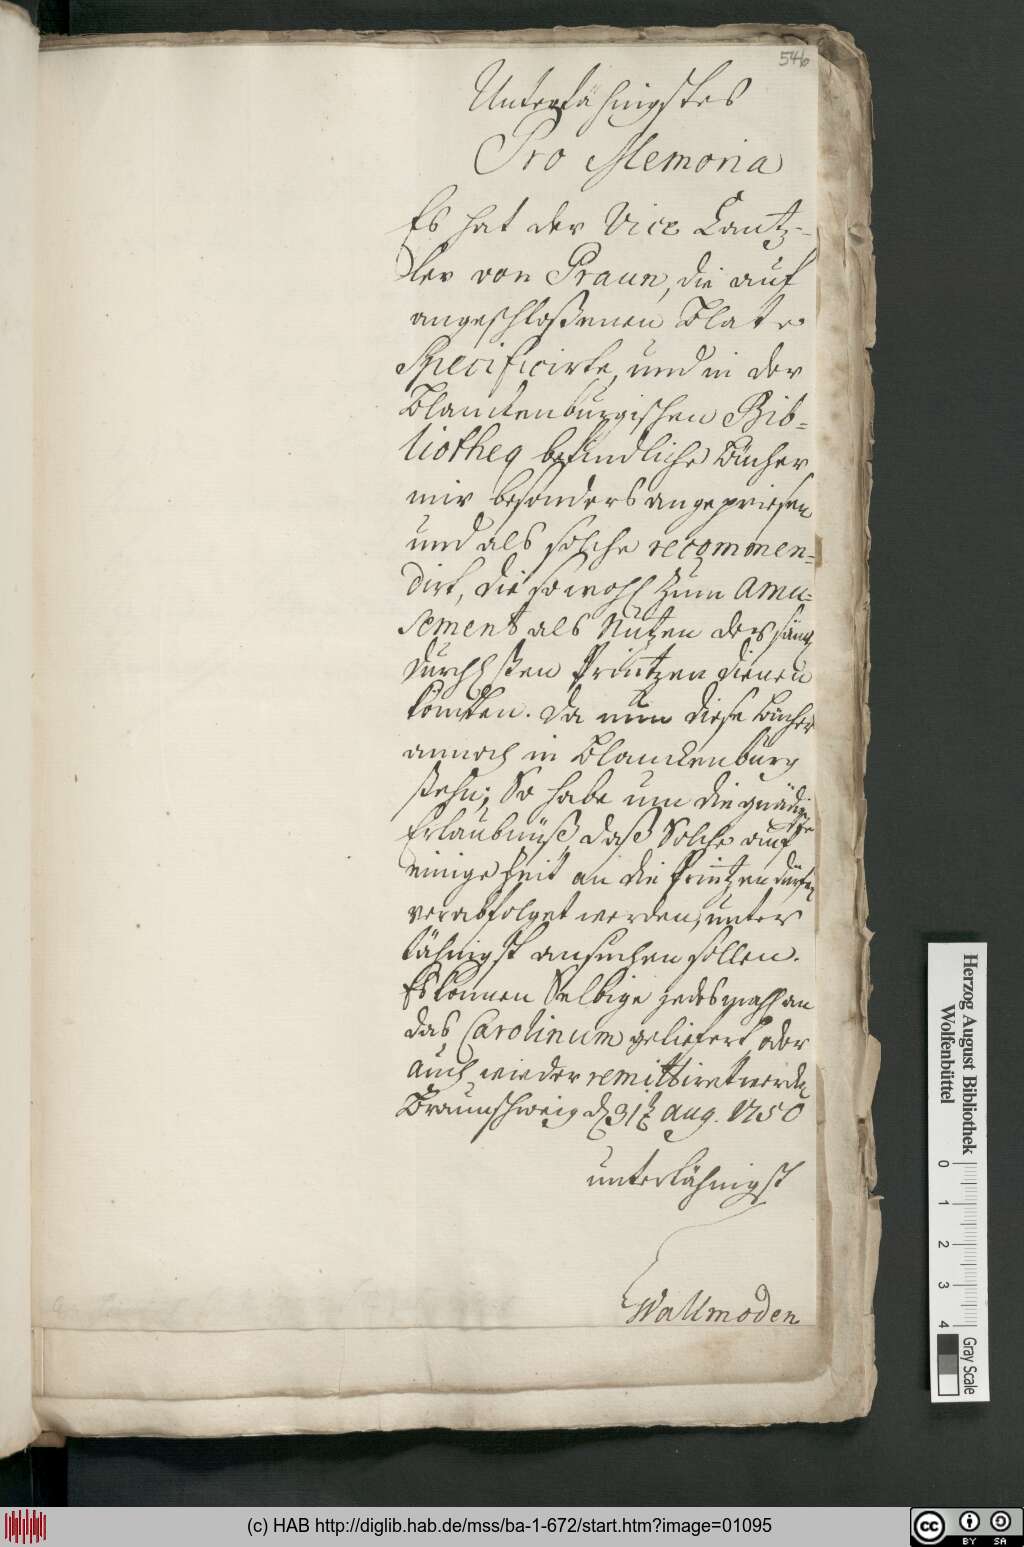 546
Unterthänigstes
Pro Memoria
Es hat der Vice Cantz-
ler von Praun, die auf
angeschloßenen Blate
Specificirte, und in der
Blanckenburgischen Bib-
liotheq befindliche Bücher
mir besonders angepriesen
und als solche recommen-
dirt, die so wohl zum Amu-
sement als Nutzen der sämtl
durchl sten Printzen dienen
könten. Da nun diese bücher
annoch in Blanckenburg
stehn; So habe um die gnädigste
Erlaubnüß daß Solche auf
einige Zeit an die Printzen dürfen
verabfolget werden, unter
thänigst ansuchen sollen.
Es können Selbige jedesmahl an
das Carolinum geliefert, oder
auch wieder remittiret werden
Braunschweig d 31t Aug. 1750
unterthänigst
Wallmoden
Herzog August Bibliothek
Wolfenbüttel
0 1 2 3 4
Gray Scale
(c) HAB http://diglib.hab.de/mss/ba-1-672/start.htm?image=01095
cc BY SA